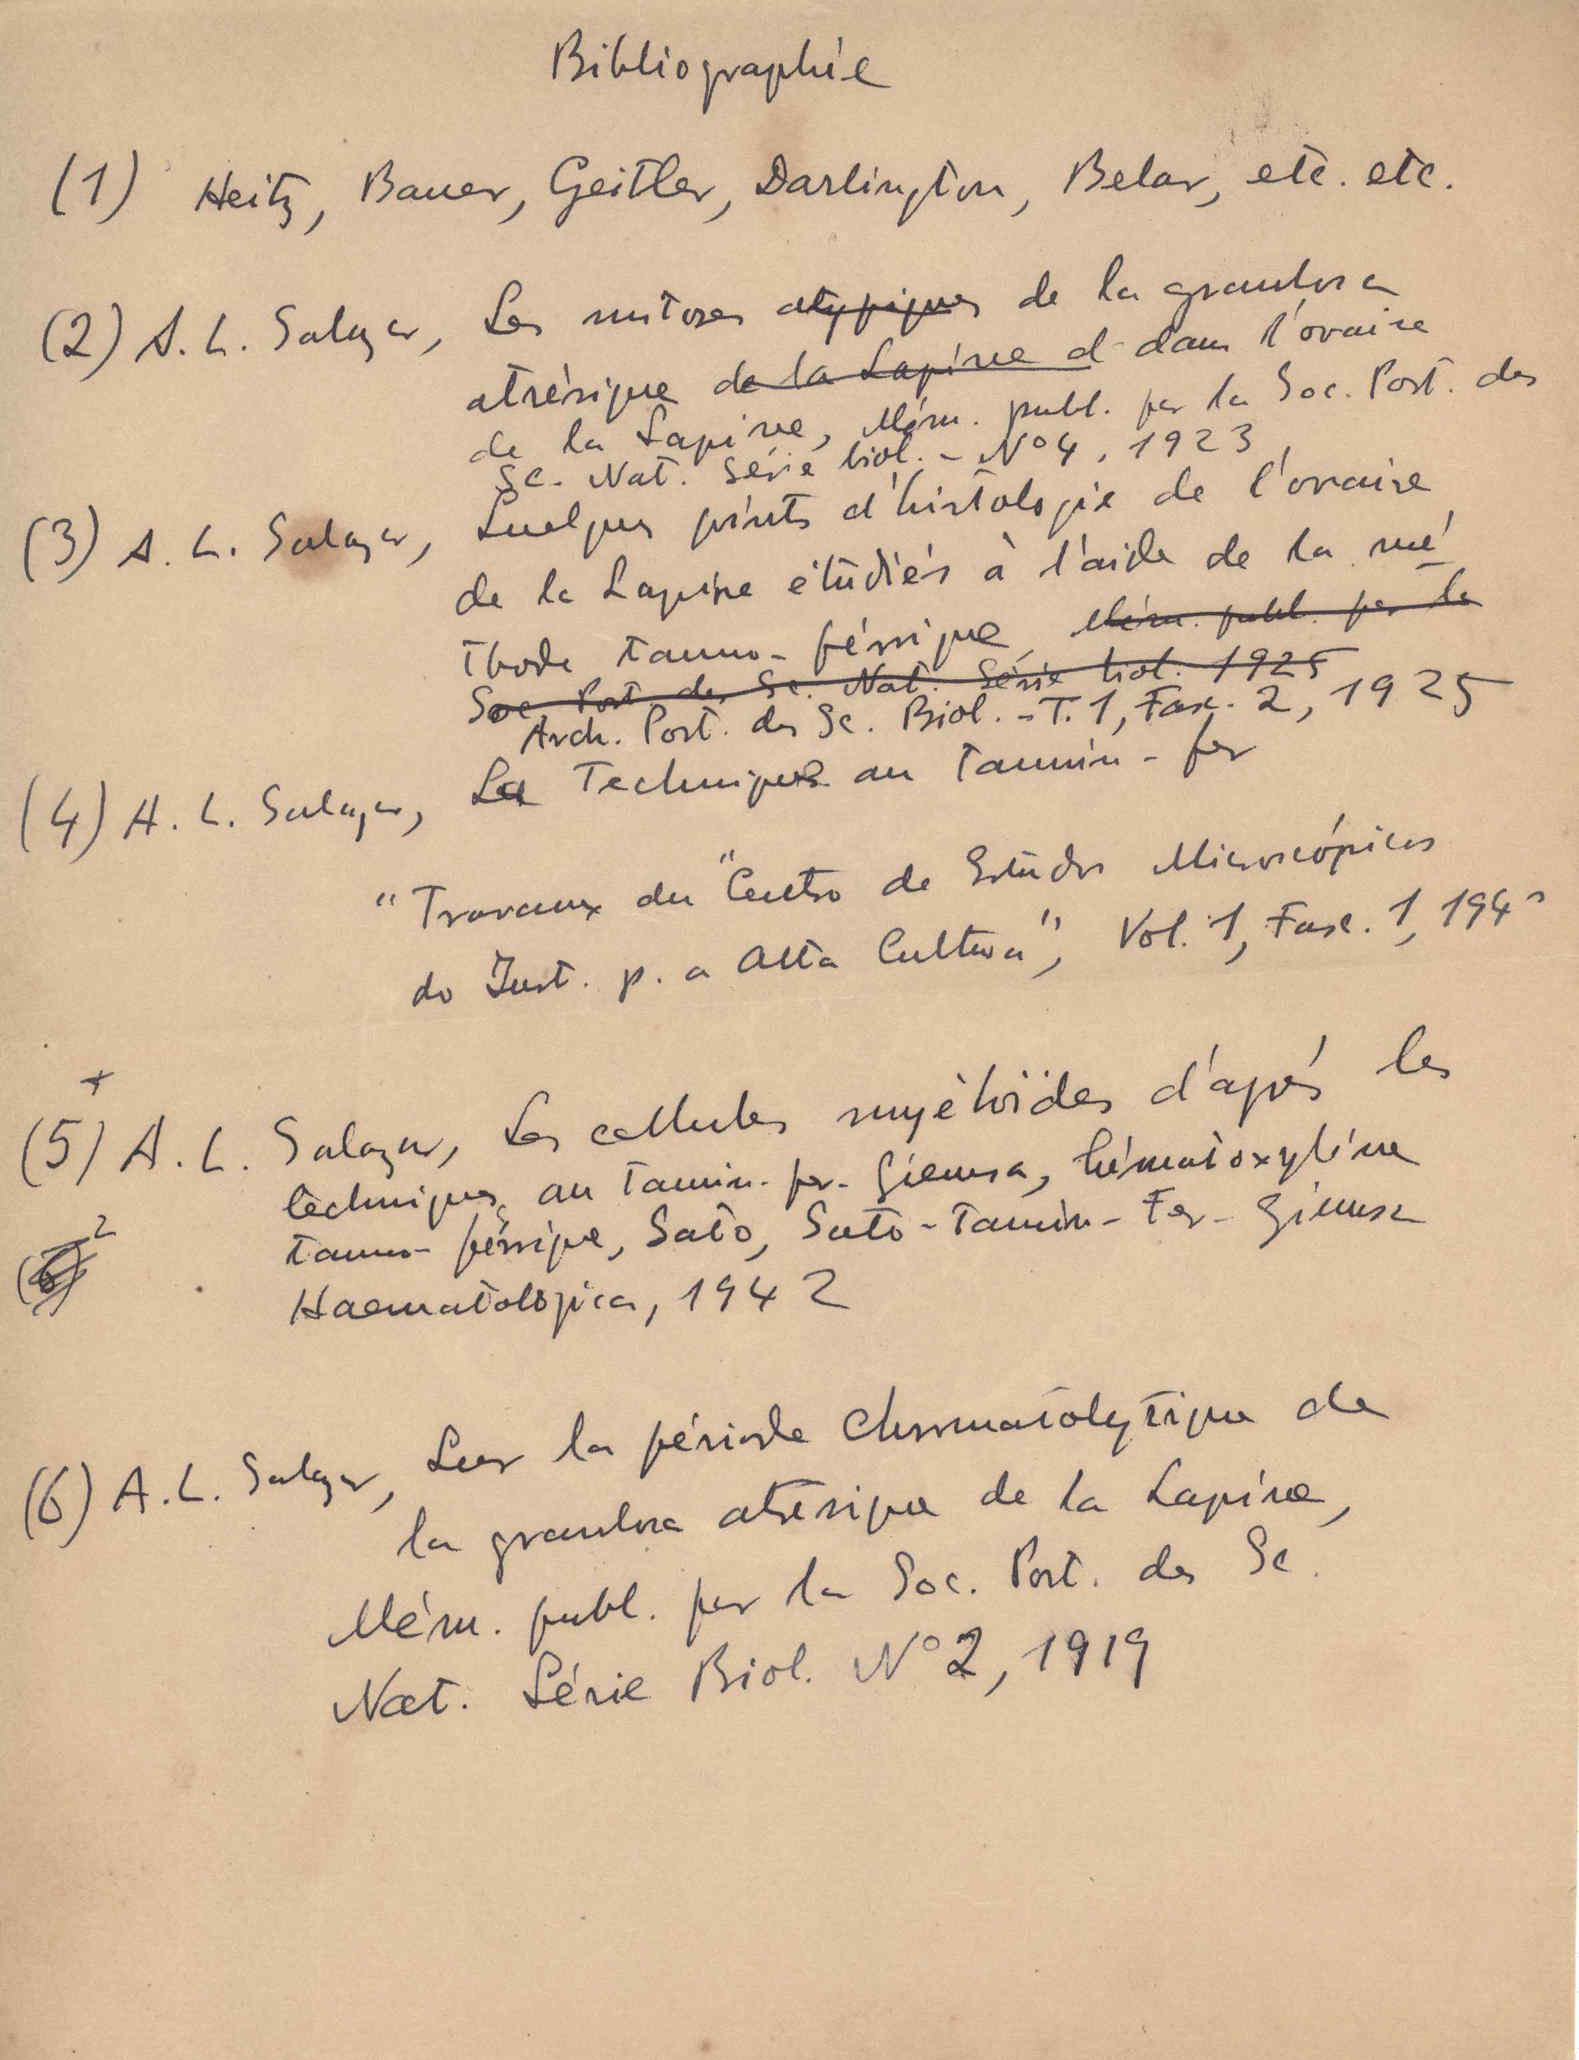 Bibliographie
(1) Heitz, Bauer, Geitler, Darlington, Belar, etc. etc.
(2) A. L. Salazar, Les mitoses atypiques de la granulosa
atrésique de la Lapine d dans l'ovaire
de la Lapine, Mém. publ. par la Soc. Port. des
Sc. Nat. Série biol. - Nº 4, 1923
(3) A. L. Salazar, Quelques points d'histologie de l'ovaire
de la Lapine étudiés à l'aide de la mé-
thode tanno-férrique, Mém. publ. par la
Soc. Port. des Sc. Nat. Série biol. 1925
Arch. Port. des Sc. Biol. - T. 1, Fasc. 2, 1925
(4) A. L. Salazar, La Technique au Tannin-fer
"Travaux du "Centro de Estudos Microscópicos
do Inst. p. a Alta Cultura", Vol. 1, Fasc. 1, 194
(5) A. L. Salazar, Les cellules myéloïdes d'après les
techniques au tannin-fer-Giemsa, hématoxyline
tanno-férrique, Sato, Sato-Tannin-Fer-Giemsa
Haematologica, 1942
(6) A. L. Salazar, Sur la période chromatolytique de
la granulosa atrésique de la Lapine,
Mém. publ. par la Soc. Port. des Sc.
Nat. Série Biol. Nº 2, 1919